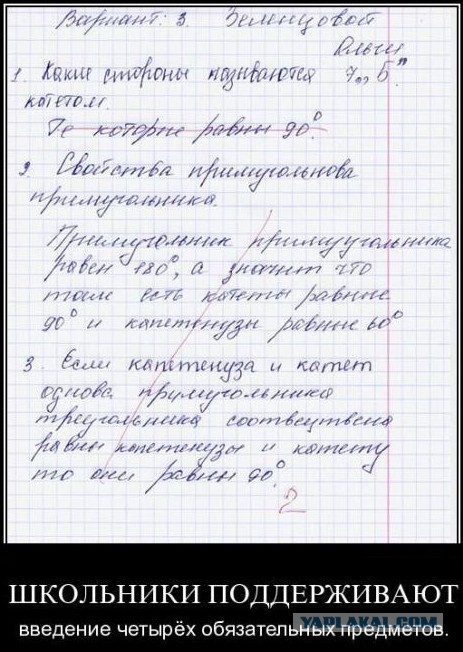 Вариант: 3. Зеленцовой
Ольги
1. Какие стороны называются 7 „Б"
котетом.
Те которые равны 90°.
2. Свойства примуголькова
примугольника.
Примугольник примуугольника
равен 180°, а значит что
там есть катеты равные
90° и капетонузы равные 60°
3. Если капетенуза и катет
однова примугольника
треугольника соотвецтвена
равны капетенузы и катету
то они равны 90°.
2
ШКОЛЬНИКИ ПОДДЕРЖИВАЮТ
YAPLAKAL.COM
введение четырёх обязательных предметов.